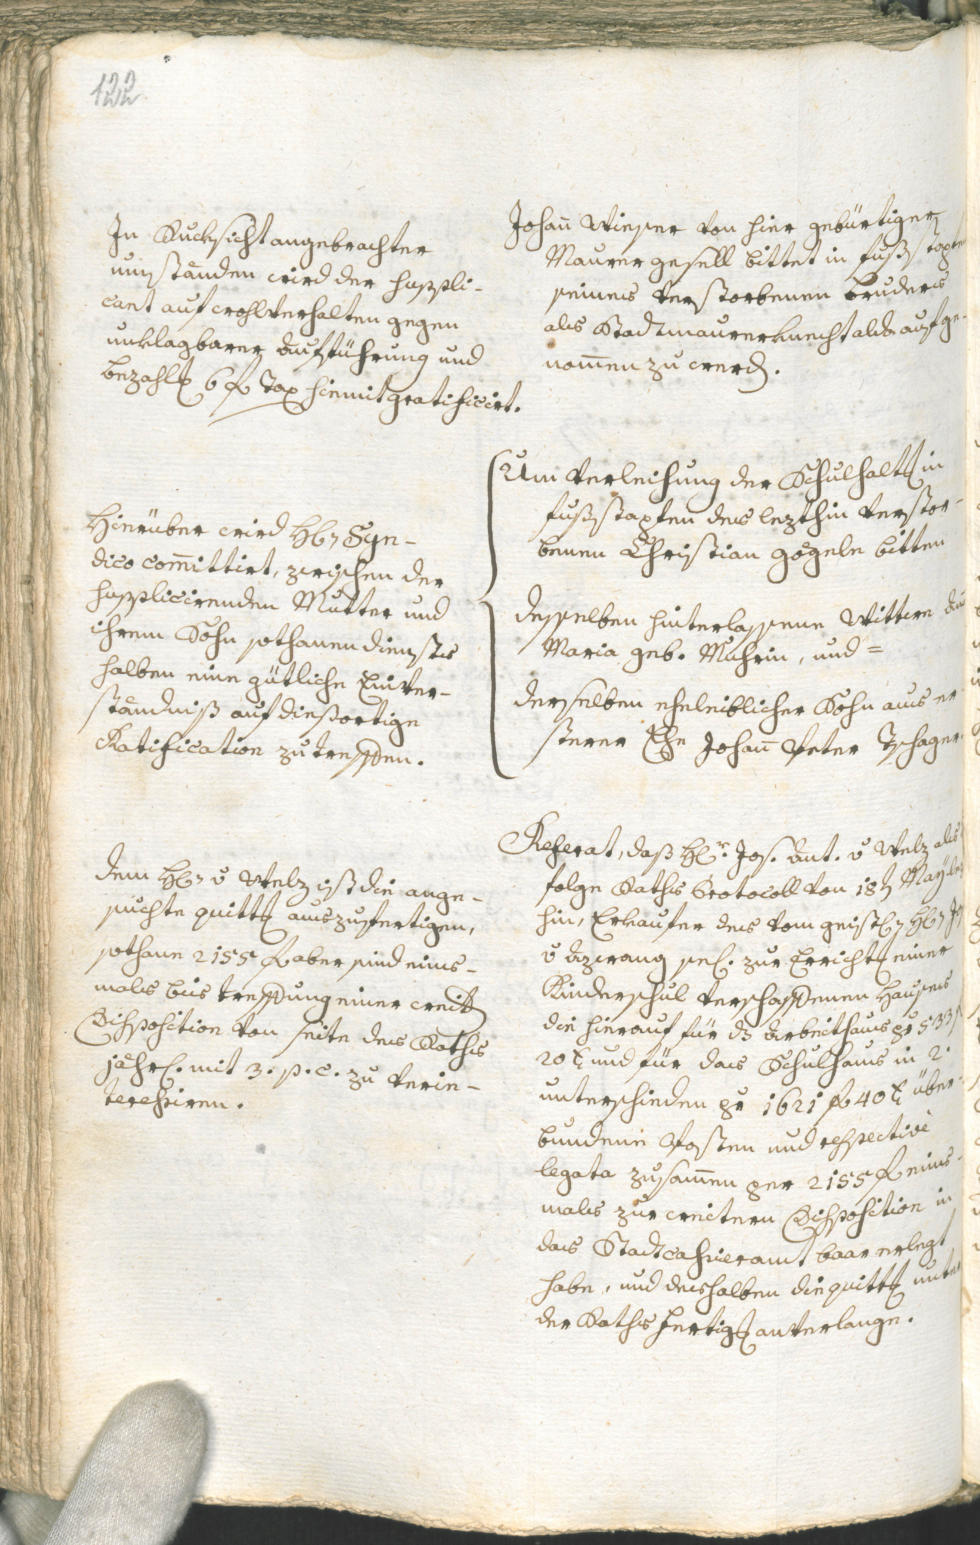 122
In Rucksicht angebrachter
umständen wird der suppli-
cant auf wohlverhalten gegen
unklagbarer Aufführung und
bezahlg 6 f Tax hiemit gratificirt.
Johañ Wieser von hier gebürtiger
Maurergesell bittet in fußstapfen
seines verstorbenen bruders
als Stadtmaurerknecht alda aufge-
nom̄en zu werdē.
Hierüber wird H: Syn-
dico com̄ittirt, zwischen der
supplicirenden Mutter und
ihrem Sohn sothanen dienstes
halben eine gütliche Einver-
ständniß auf diesortige
Ratification zu treffen.
Um verleihung der Schulhaltg in
fußstapfen des lezthin verstor-
benen Christian gögele bitten
desselben hinterlassene Wittwe
Maria geb. Mußrin, und =
derselben eheleiblicher Sohn aus er
sterer Ehe Johañ Peter Tschager.
dem H: v Welz ist die ange-
suchte quittg auszufertigen,
sothane 2155 f aber sind eins-
mals bis treffung einer weit
Disposition von seite des Raths
jährl. mit 3. p. c. zu verin-
teresiren.
Referat, daß H:r Jos. Ant. v Welz als
folge Raths Protocoll von 18t May
hin, Erkaufer des vom geistl: H:
v sel. zur Errichtg einer
Kinderschul verschaffenen Hauses
die hierauf für dz Arbeithaus pr 533 f
20 x und für das Schulhaus in 2
unterschieden pr 1621 f 40 x über-
bundene Posten und respective
legata zusam̄en per 2155 f eins-
mals zur weitern Disposition in
das Stadtcassieramt baar erlegt
habe, und deshalben die quittg unter
der Raths fertigg anverlange.